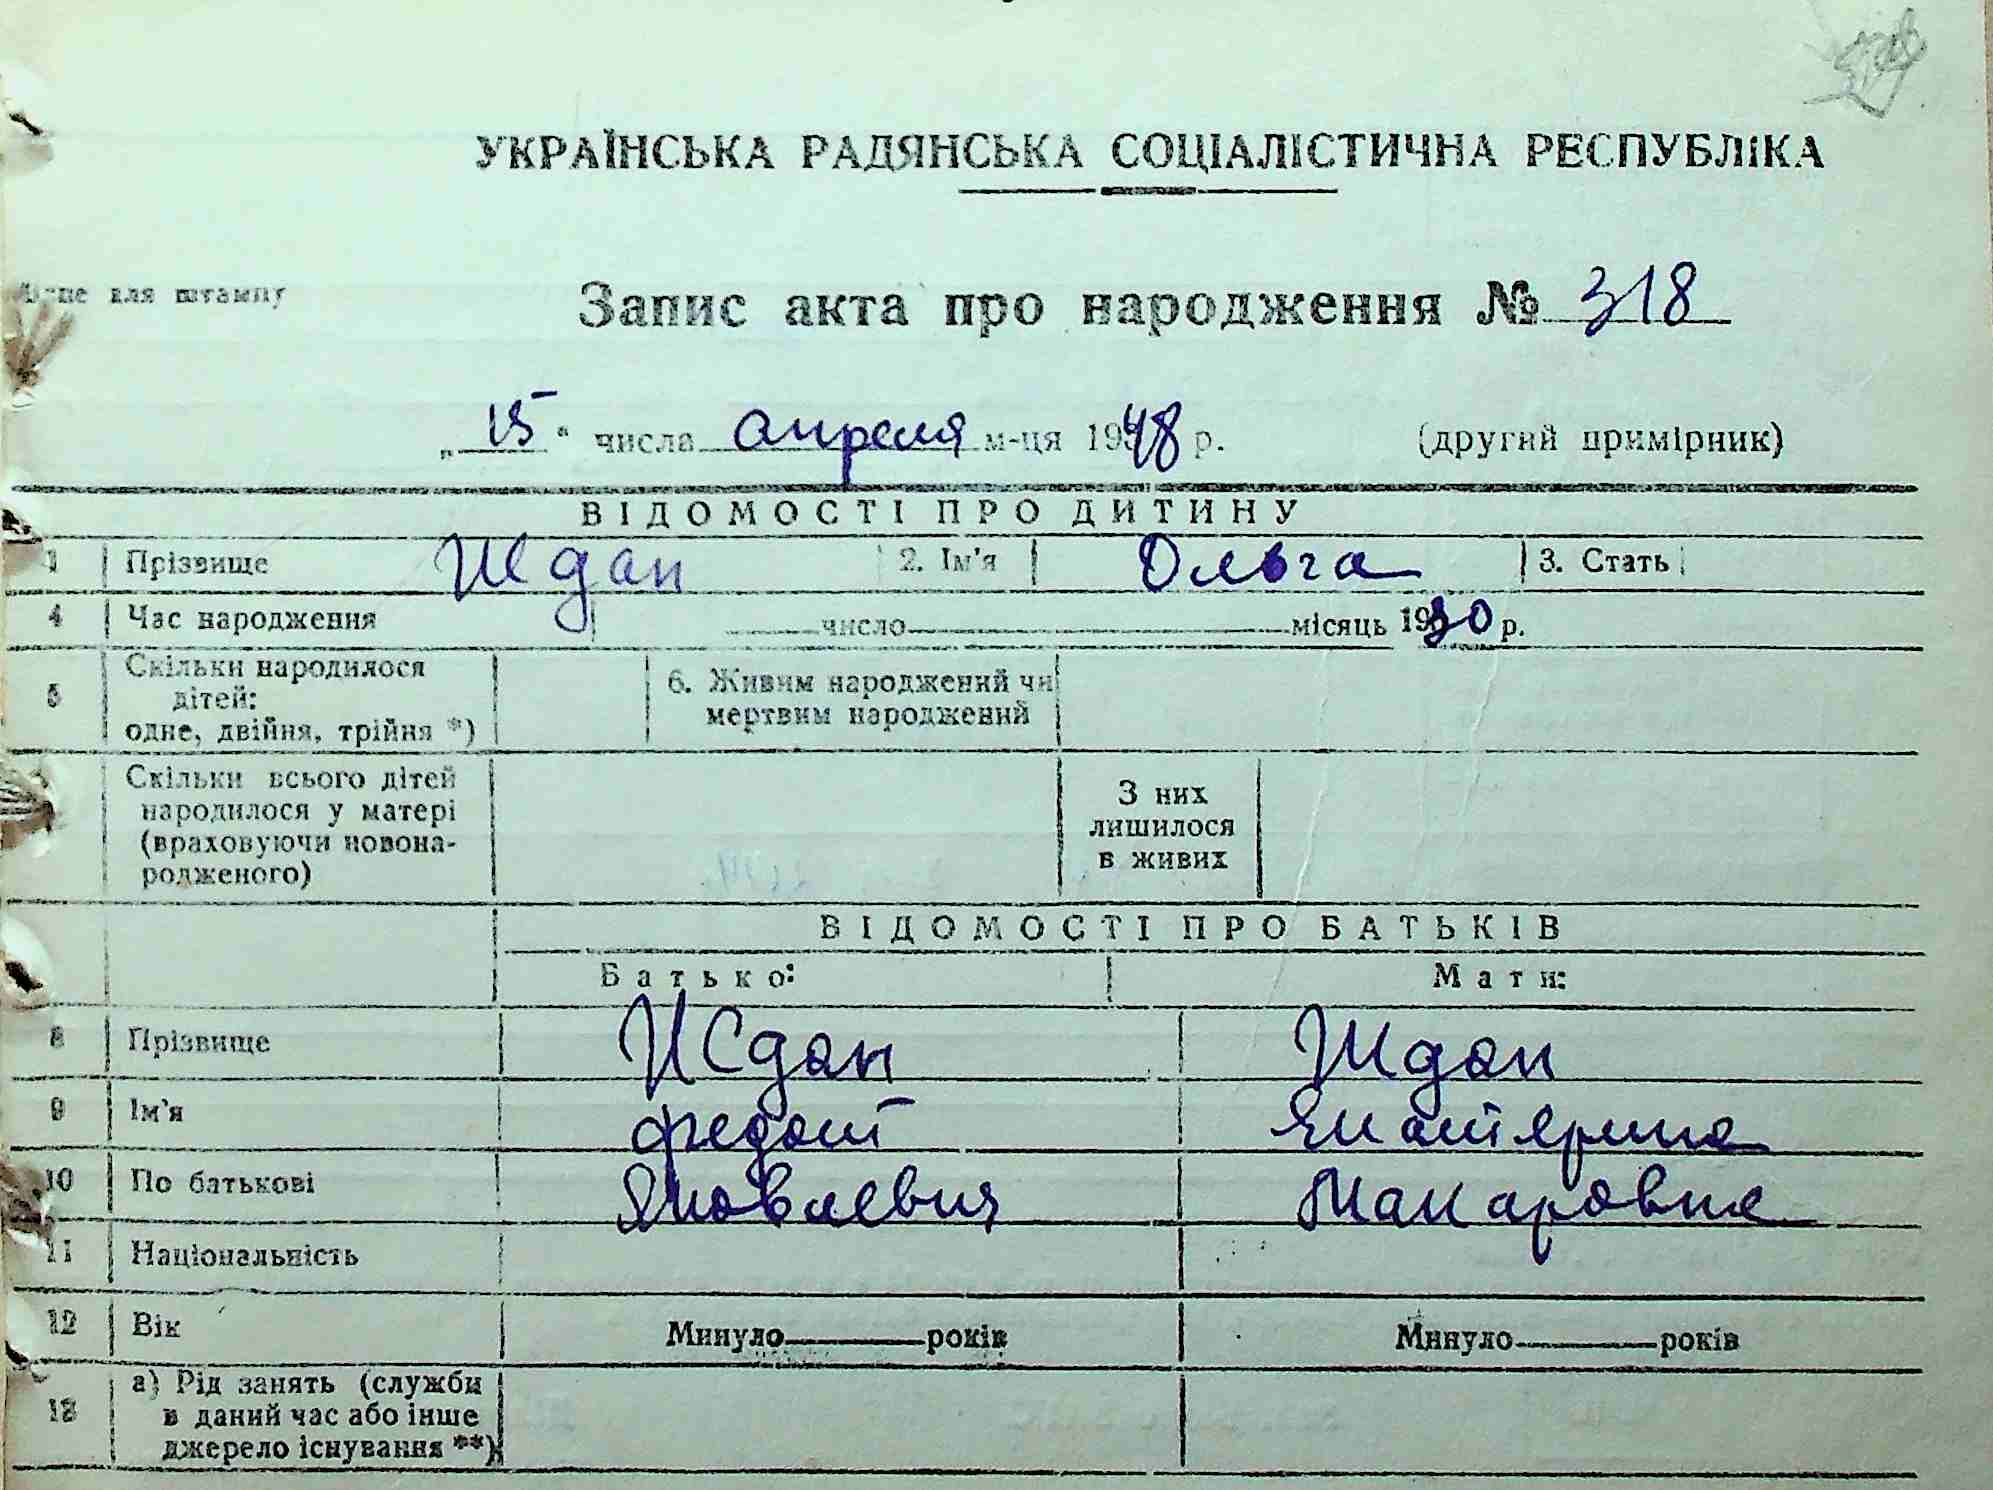 УКРАЇНСЬКА РАДЯНСЬКА СОЦІАЛІСТИЧНА РЕСПУБЛІКА
Місце для штампу
Запис акта про народження № 318
„15“ числа апреля м-ця 1948 р. (другий примірник)
ВІДОМОСТІ ПРО ДИТИНУ
1 Прізвище Ждан 2. Ім'я Ольга 3. Стать
4 Час народження число місяць 1930 р.
5 Скільки народилося дітей: одне, двійня, трійня *) 6. Живим народжений чи мертвим народжений
Скільки всього дітей народилося у матері (враховуючи новонародженого) З них лишилося в живих
ВІДОМОСТІ ПРО БАТЬКІВ
Батько: Мати:
8 Прізвище Ждан Ждан
9 Ім'я Федот Екатерина
10 По батькові Яковлевич Макаровна
11 Національність
12 Вік Минуло років Минуло років
13 а) Рід занять (служби в даний час або інше джерело існування **)